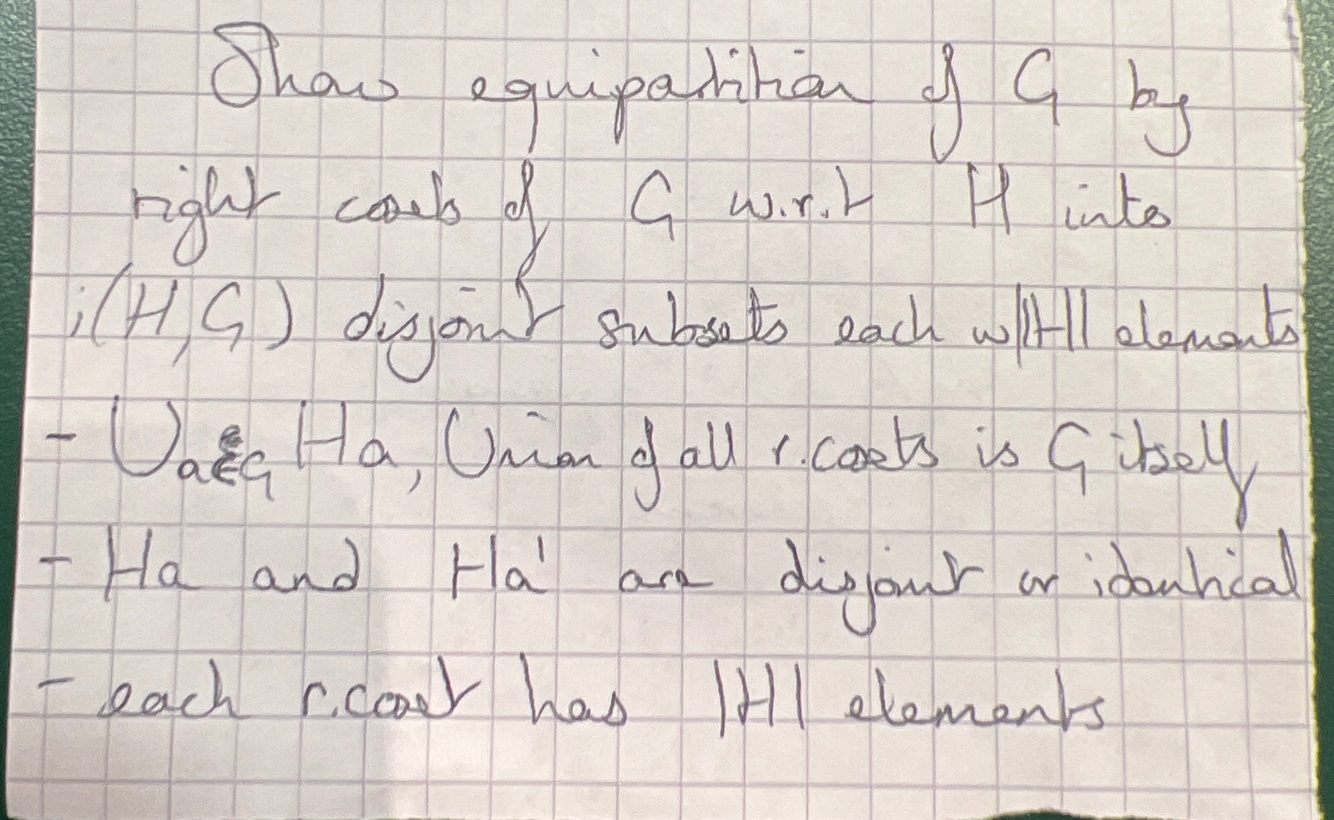 Show equipartition of G by
right cosets of G w.r.t H into
i(H,G) disjoint subsets each w/|H| elements
- ∪a∈G Ha, Union of all r.cosets is G itself
- Ha and Ha' are disjoint or identical
- each r.coset has |H| elements